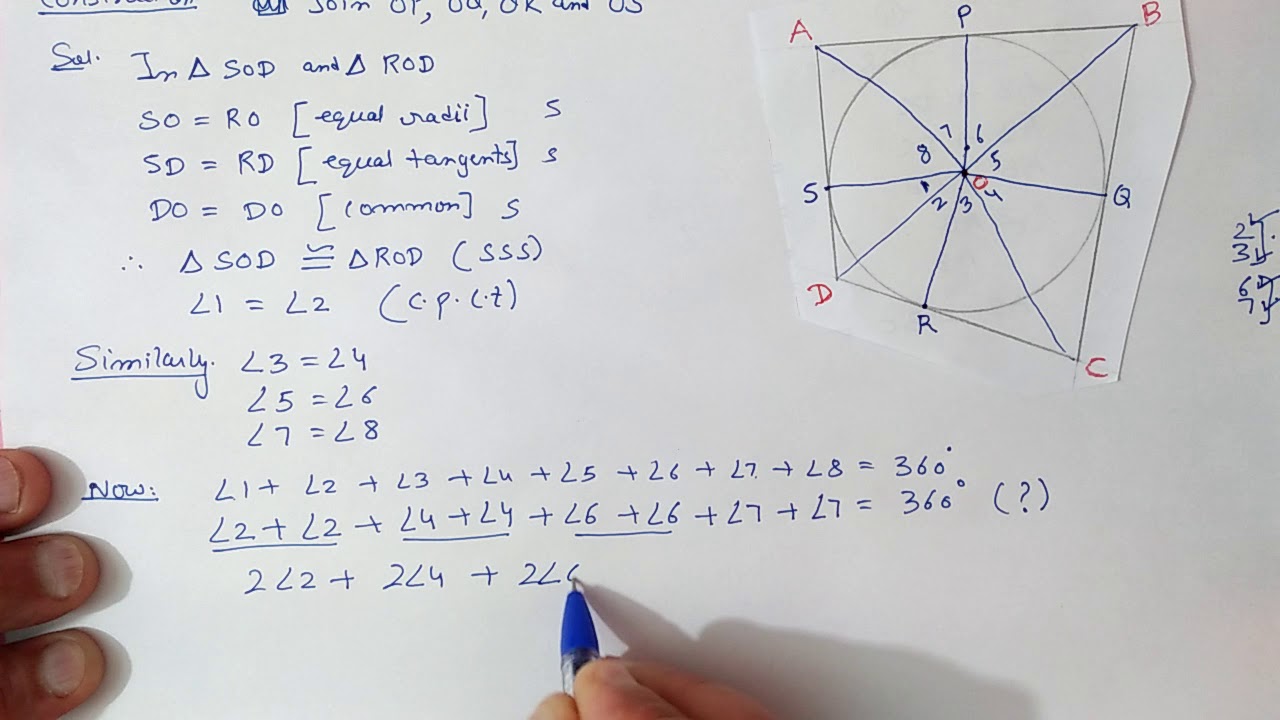 Join OP, OQ, OR and OS
Sol. In Δ SOD and Δ ROD
SO = RO [equal radii] S
SD = RD [equal tangents] S
DO = DO [common] S
∴ Δ SOD ≅ Δ ROD (SSS)
∠1 = ∠2 (c.p.c.t)
Similarly. ∠3 = ∠4
∠5 = ∠6
∠7 = ∠8
Now: ∠1 + ∠2 + ∠3 + ∠4 + ∠5 + ∠6 + ∠7 + ∠8 = 360°
∠2 + ∠2 + ∠4 + ∠4 + ∠6 + ∠6 + ∠7 + ∠7 = 360° (?)
2∠2 + 2∠4 + 2∠6
A
P
B
7
6
8
5
S
O
Q
2
3
4
D
R
C
2
3
6
7